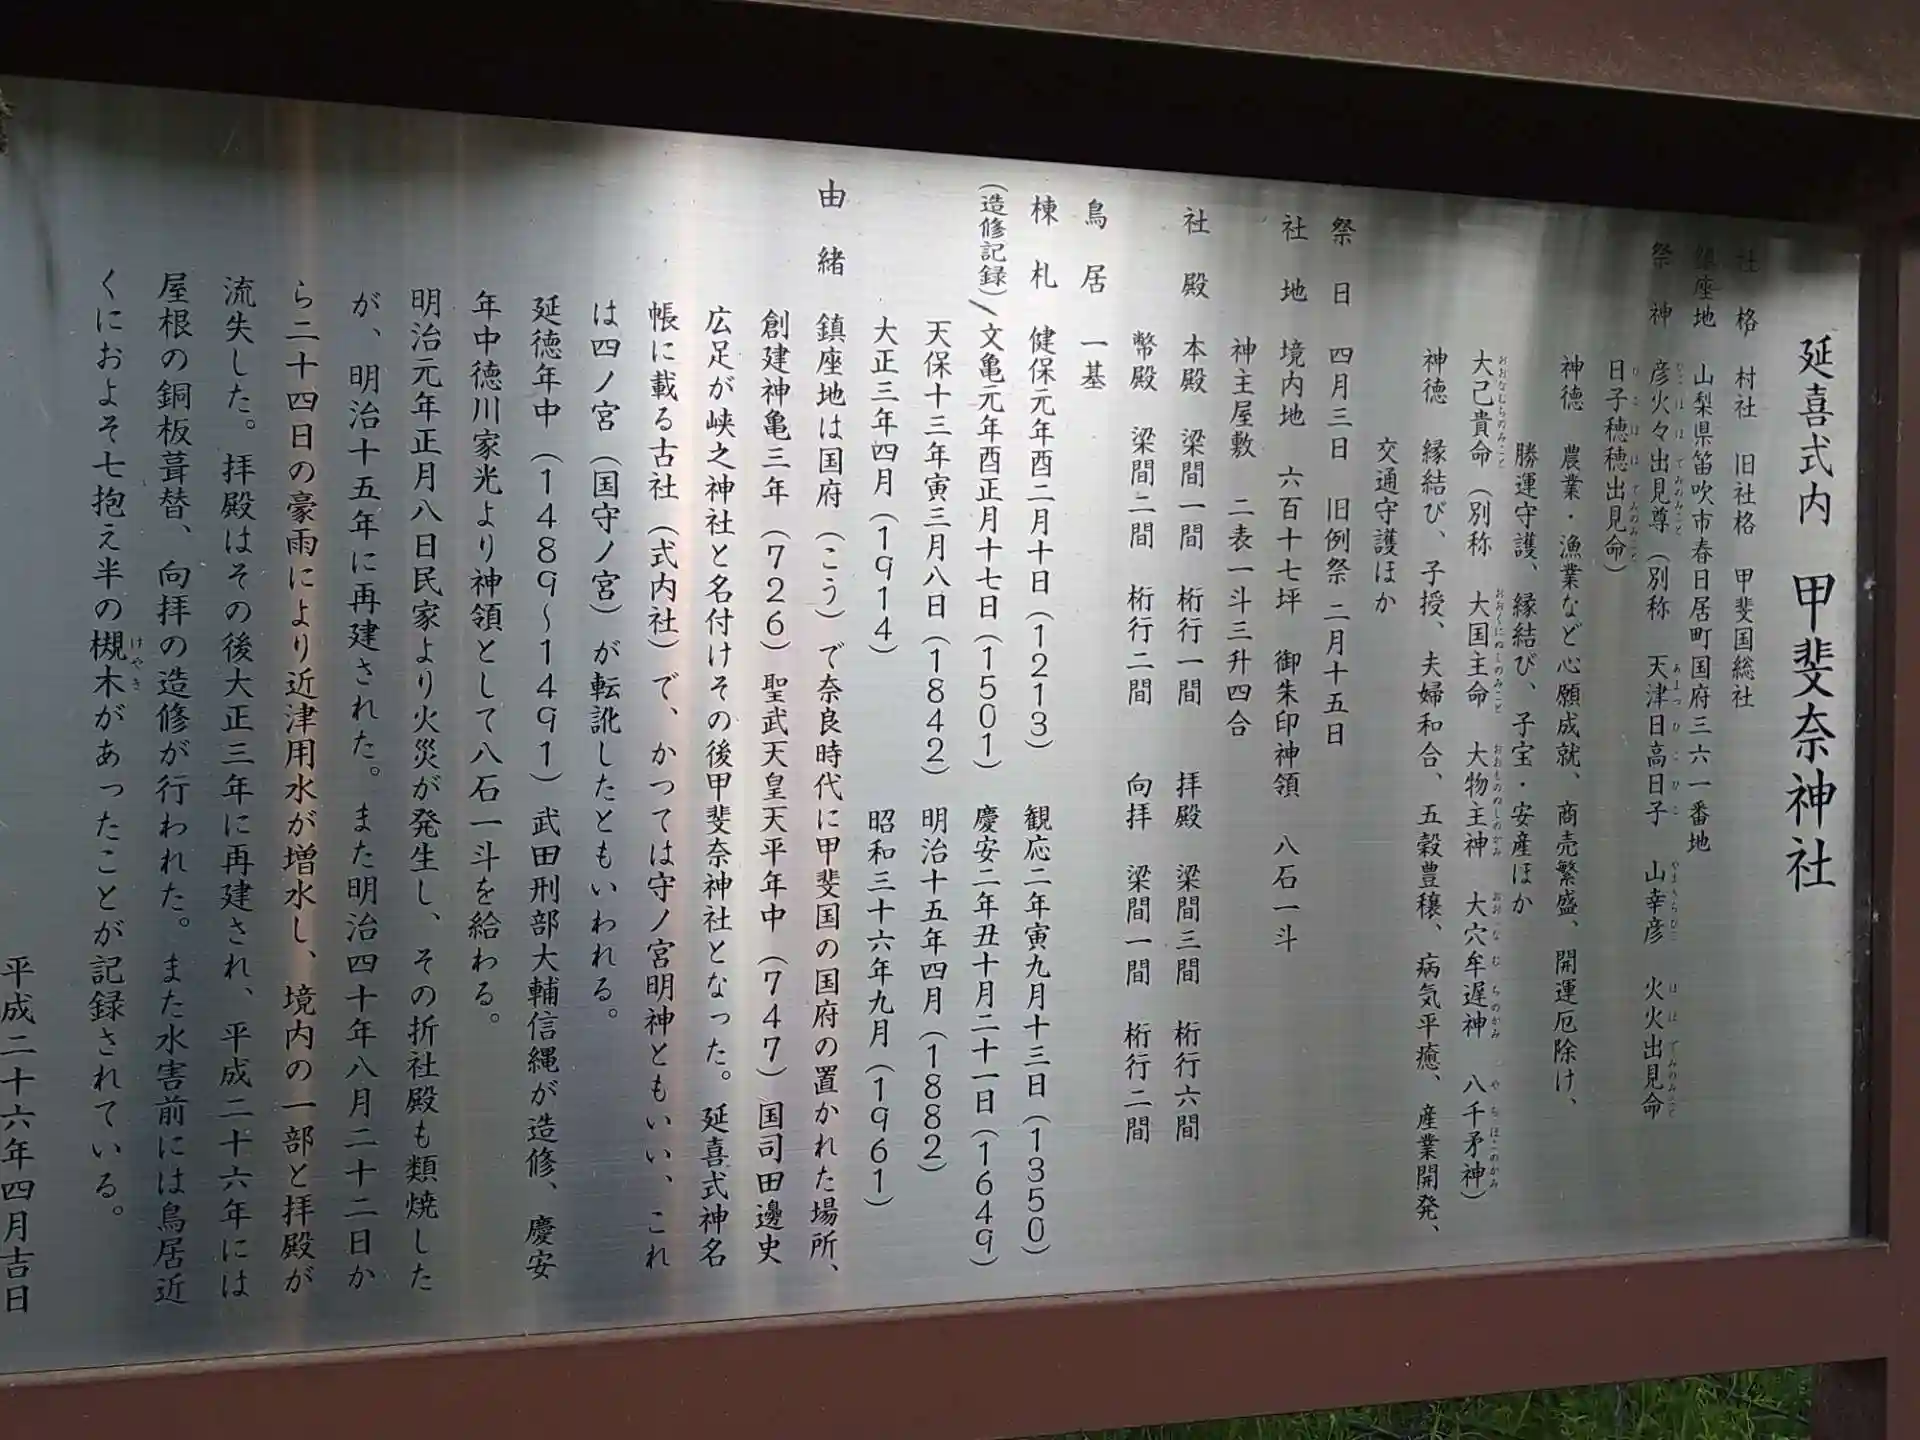 延喜式内 甲斐奈神社
社格 村社 旧社格 甲斐国総社
鎮座地 山梨県笛吹市春日居町国府三六一番地
祭神 彦火々出見尊（別称 天津日高日子 山幸彦 火火出見命
日子穂穂出見命）
神徳 農業・漁業など心願成就、商売繁盛、開運厄除け、
勝運守護、縁結び、子宝・安産ほか
大己貴命（別称 大国主命 大物主神 大穴牟遅神 八千矛神）
神徳 縁結び、子授、夫婦和合、五穀豊穣、病気平癒、産業開発、
交通守護ほか
祭日 四月三日 旧例祭 二月十五日
社地 境内地 六百十七坪 御朱印神領 八石一斗
神主屋敷 二表一斗三升四合
社殿 本殿 梁間一間 桁行一間 拝殿 梁間三間 桁行六間
幣殿 梁間二間 桁行二間 向拝 梁間一間 桁行二間
鳥居 一基
棟札 健保元年酉二月十日（1213） 観応二年寅九月十三日（1350）
（造修記録） 文亀元年酉正月十七日（1501） 慶安二年丑十月二十一日（1649）
天保十三年寅三月八日（1842） 明治十五年四月（1882）
大正三年四月（1914） 昭和三十六年九月（1961）
由緒 鎮座地は国府（こう）で奈良時代に甲斐国の国府の置かれた場所、
創建神亀三年（726）聖武天皇天平年中（747）国司田邊史
広足が峡之神社と名付けその後甲斐奈神社となった。延喜式神名
帳に載る古社（式内社）で、かつては守ノ宮明神ともいい、これ
は四ノ宮（国守ノ宮）が転訛したともいわれる。
延徳年中（1489〜1491）武田刑部大輔信縄が造修、慶安
年中徳川家光より神領として八石一斗を給わる。
明治元年正月八日民家より火災が発生し、その折社殿も類焼した
が、明治十五年に再建された。また明治四十年八月二十二日か
ら二十四日の豪雨により近津用水が増水し、境内の一部と拝殿が
流失した。拝殿はその後大正三年に再建され、平成二十六年には
屋根の銅板葺替、向拝の造修が行われた。また水害前には鳥居近
くにおよそ七抱え半の槻木があったことが記録されている。
平成二十六年四月吉日